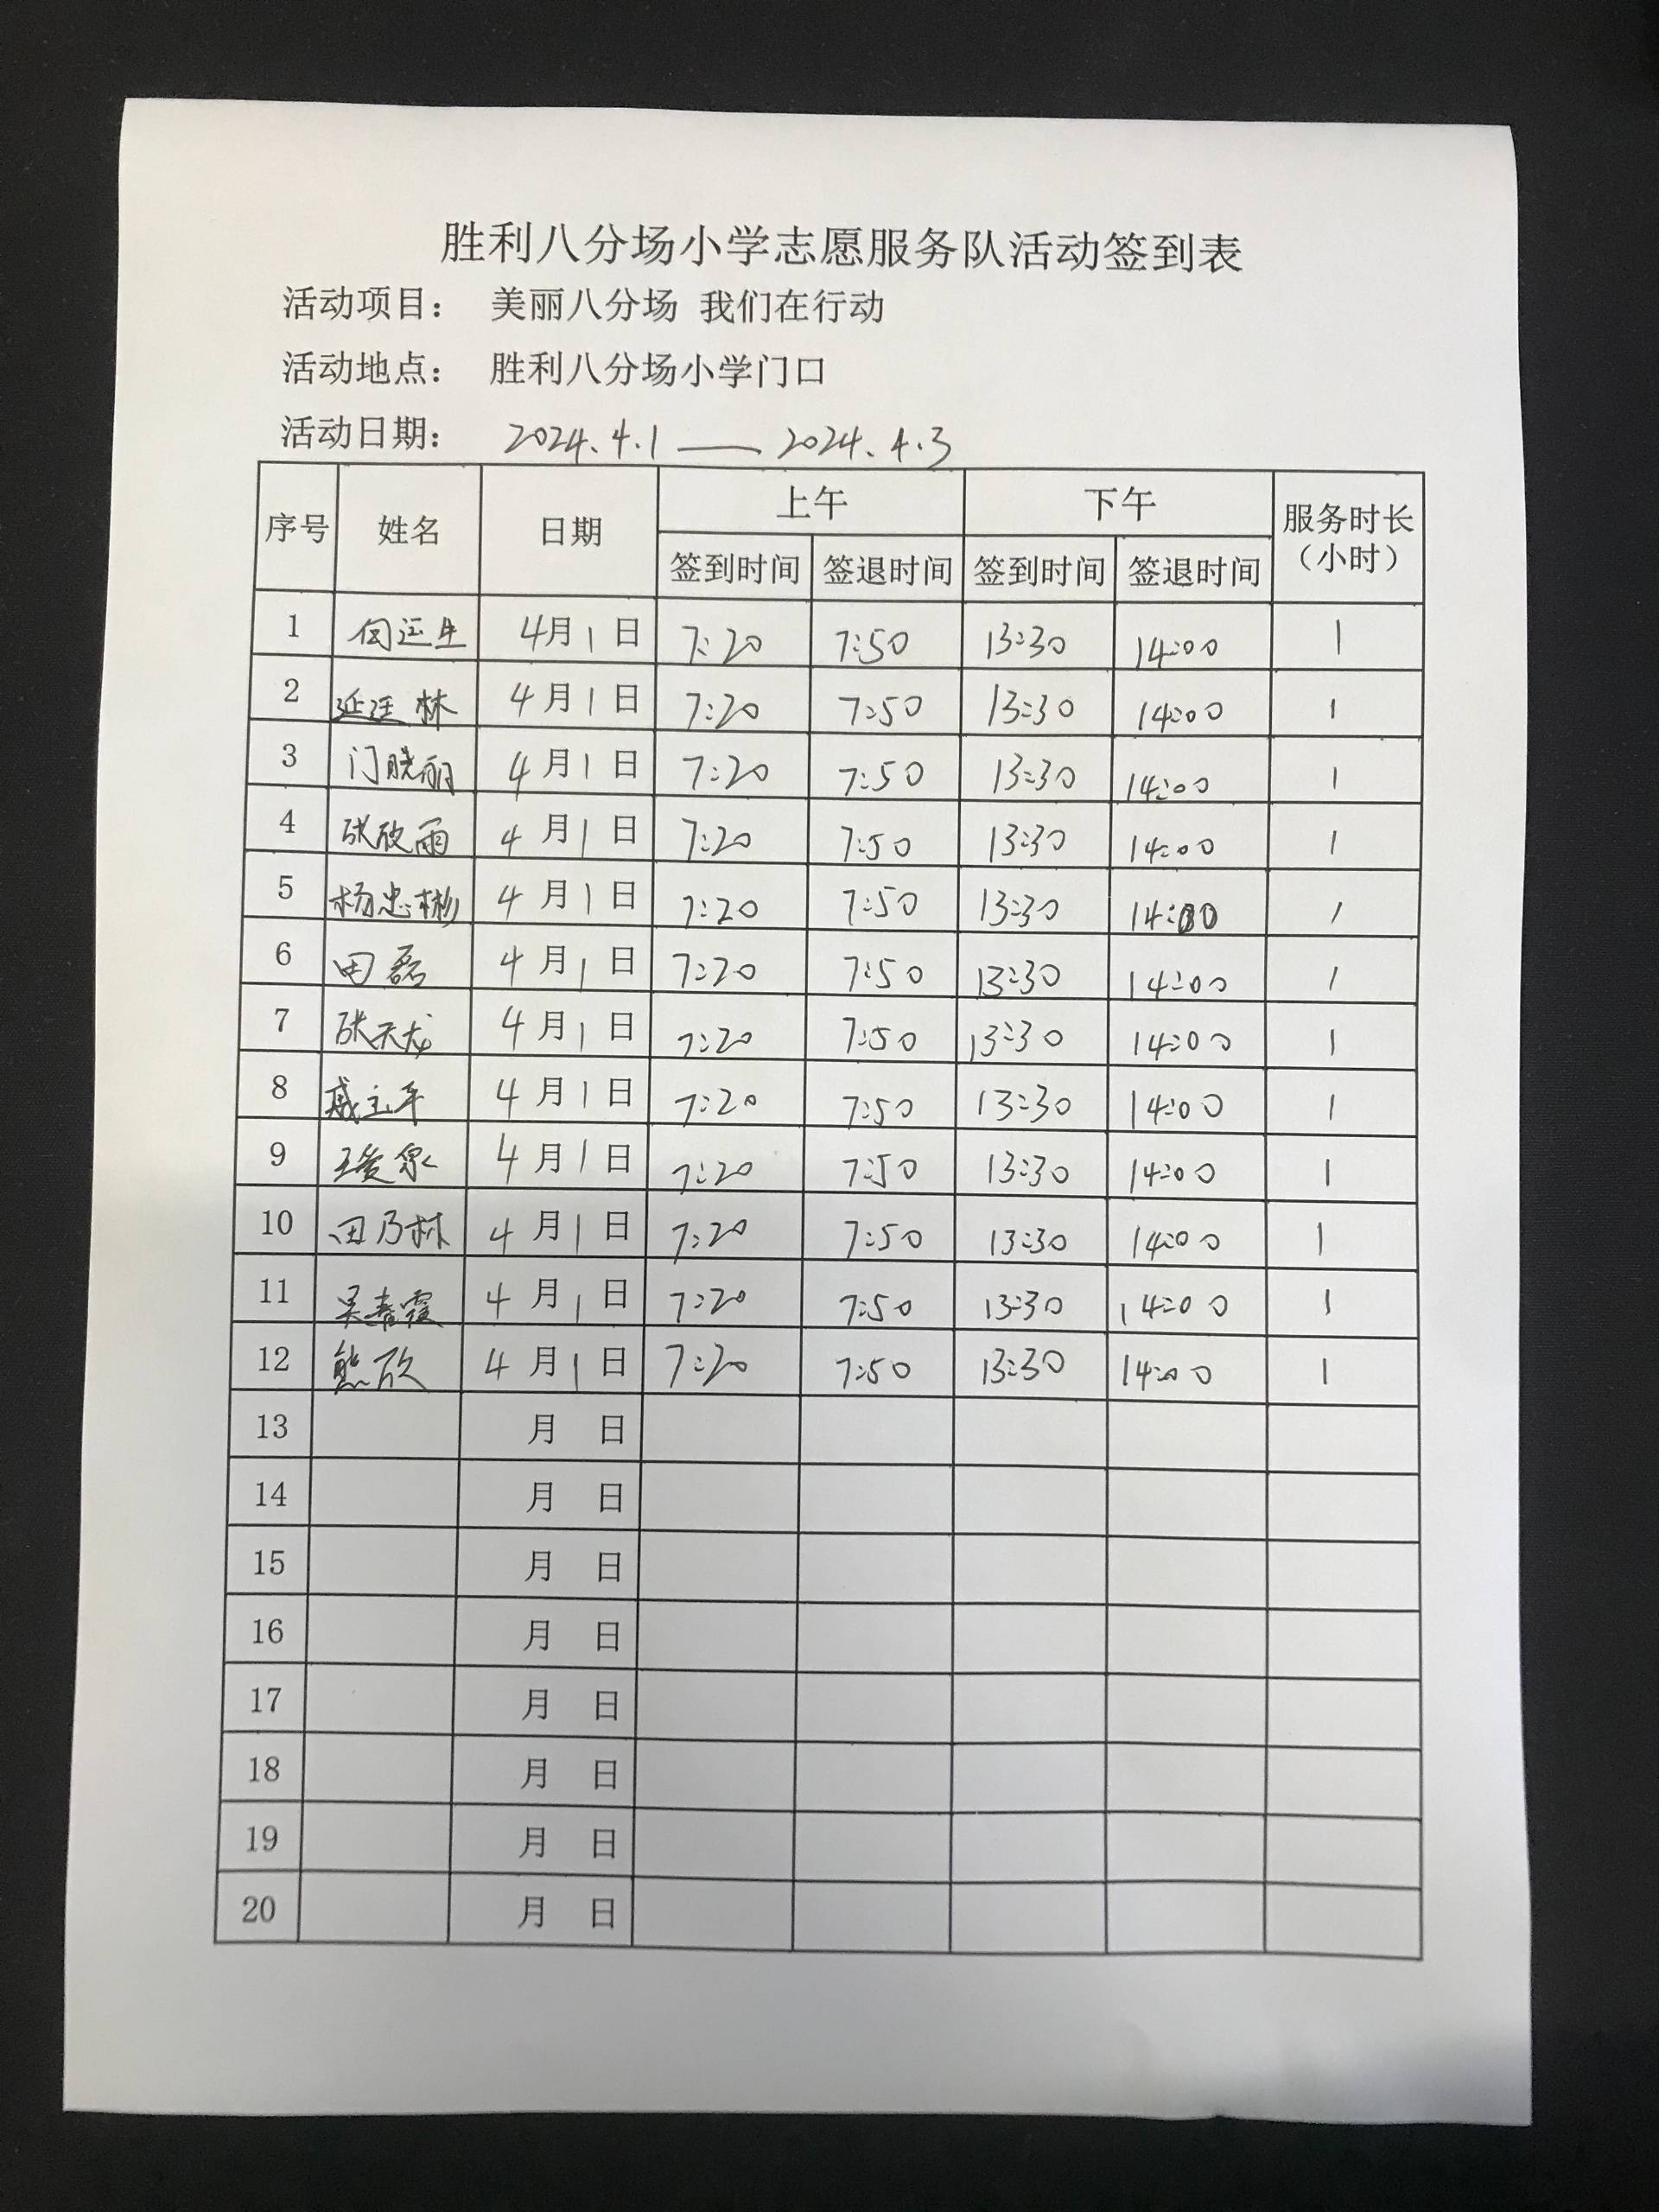 胜利八分场小学志愿服务队活动签到表
活动项目： 美丽八分场 我们在行动
活动地点： 胜利八分场小学门口
活动日期： 2024.4.1 —— 2024.4.3
序号 姓名 日期 上午 下午 服务时长（小时）
签到时间 签退时间 签到时间 签退时间
1 4月1日 7:20 7:50 13:30 14:00 1
2 4月1日 7:20 7:50 13:30 14:00 1
3 门晓丽 4月1日 7:20 7:50 13:30 14:00 1
4 张欣雨 4月1日 7:20 7:50 13:30 14:00 1
5 杨忠彬 4月1日 7:20 7:50 13:30 14:00 1
6 田磊 4月1日 7:20 7:50 13:30 14:00 1
7 张天龙 4月1日 7:20 7:50 13:30 14:00 1
8 4月1日 7:20 7:50 13:30 14:00 1
9 4月1日 7:20 7:50 13:30 14:00 1
10 田乃林 4月1日 7:20 7:50 13:30 14:00 1
11 吴春霞 4月1日 7:20 7:50 13:30 14:00 1
12 熊欣 4月1日 7:20 7:50 13:30 14:00 1
13 月 日
14 月 日
15 月 日
16 月 日
17 月 日
18 月 日
19 月 日
20 月 日